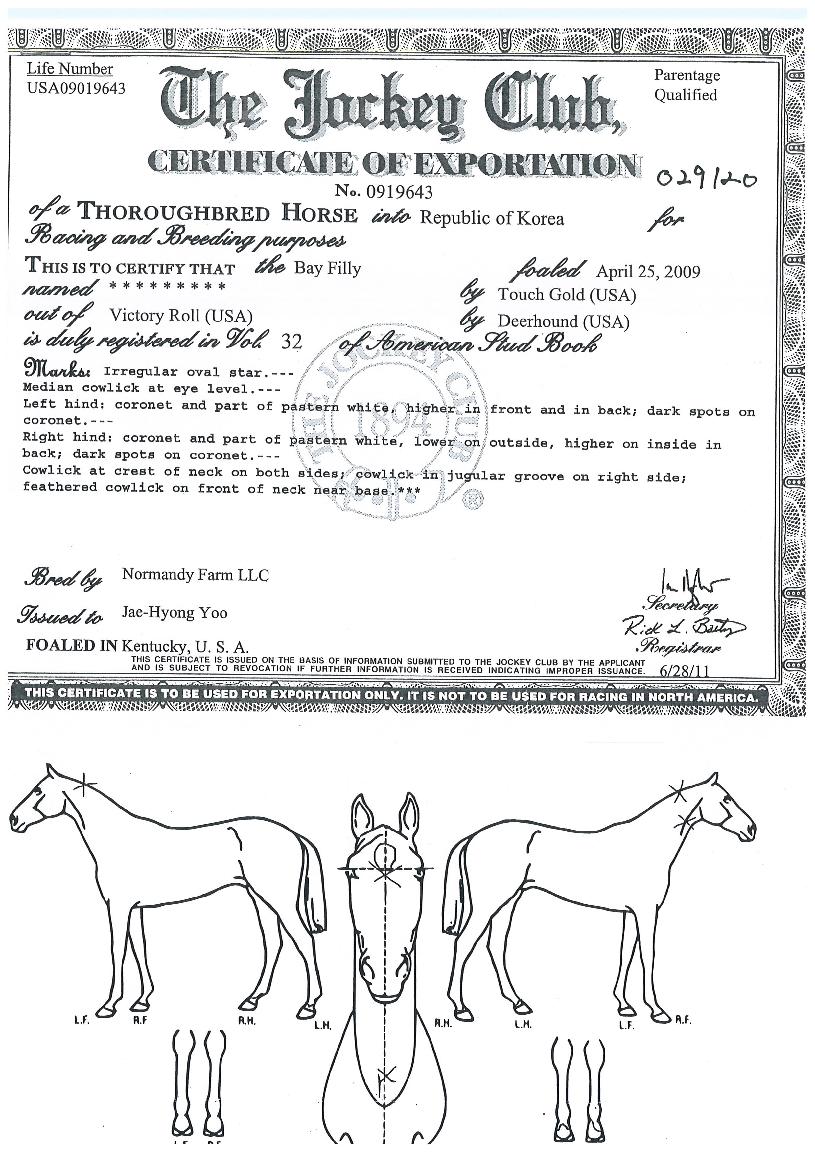 Life Number
USA09019643
The Jockey Club,
Parentage
Qualified
CERTIFICATE OF EXPORTATION
029120
No. 0919643
of a THOROUGHBRED HORSE into Republic of Korea for
Racing and Breeding purposes
THIS IS TO CERTIFY THAT the Bay Filly foaled April 25, 2009
named * * * * * * * * * by Touch Gold (USA)
out of Victory Roll (USA) by Deerhound (USA)
is duly registered in Vol. 32 of American Stud Book
THE JOCKEY CLUB
1894
®
Marks: Irregular oval star.---
Median cowlick at eye level.---
Left hind: coronet and part of pastern white, higher in front and in back; dark spots on
coronet.---
Right hind: coronet and part of pastern white, lower on outside, higher on inside in
back; dark spots on coronet.---
Cowlick at crest of neck on both sides; cowlick in jugular groove on right side;
feathered cowlick on front of neck near base.***
Bred by Normandy Farm LLC
Issued to Jae-Hyong Yoo
Secretary
Rick L. Bailey
Registrar
FOALED IN Kentucky, U. S. A.
THIS CERTIFICATE IS ISSUED ON THE BASIS OF INFORMATION SUBMITTED TO THE JOCKEY CLUB BY THE APPLICANT
AND IS SUBJECT TO REVOCATION IF FURTHER INFORMATION IS RECEIVED INDICATING IMPROPER ISSUANCE. 6/28/11
THIS CERTIFICATE IS TO BE USED FOR EXPORTATION ONLY. IT IS NOT TO BE USED FOR RACING IN NORTH AMERICA.
L.F. R.F R.H. L.H. R.H. L.H. L.F. R.F.